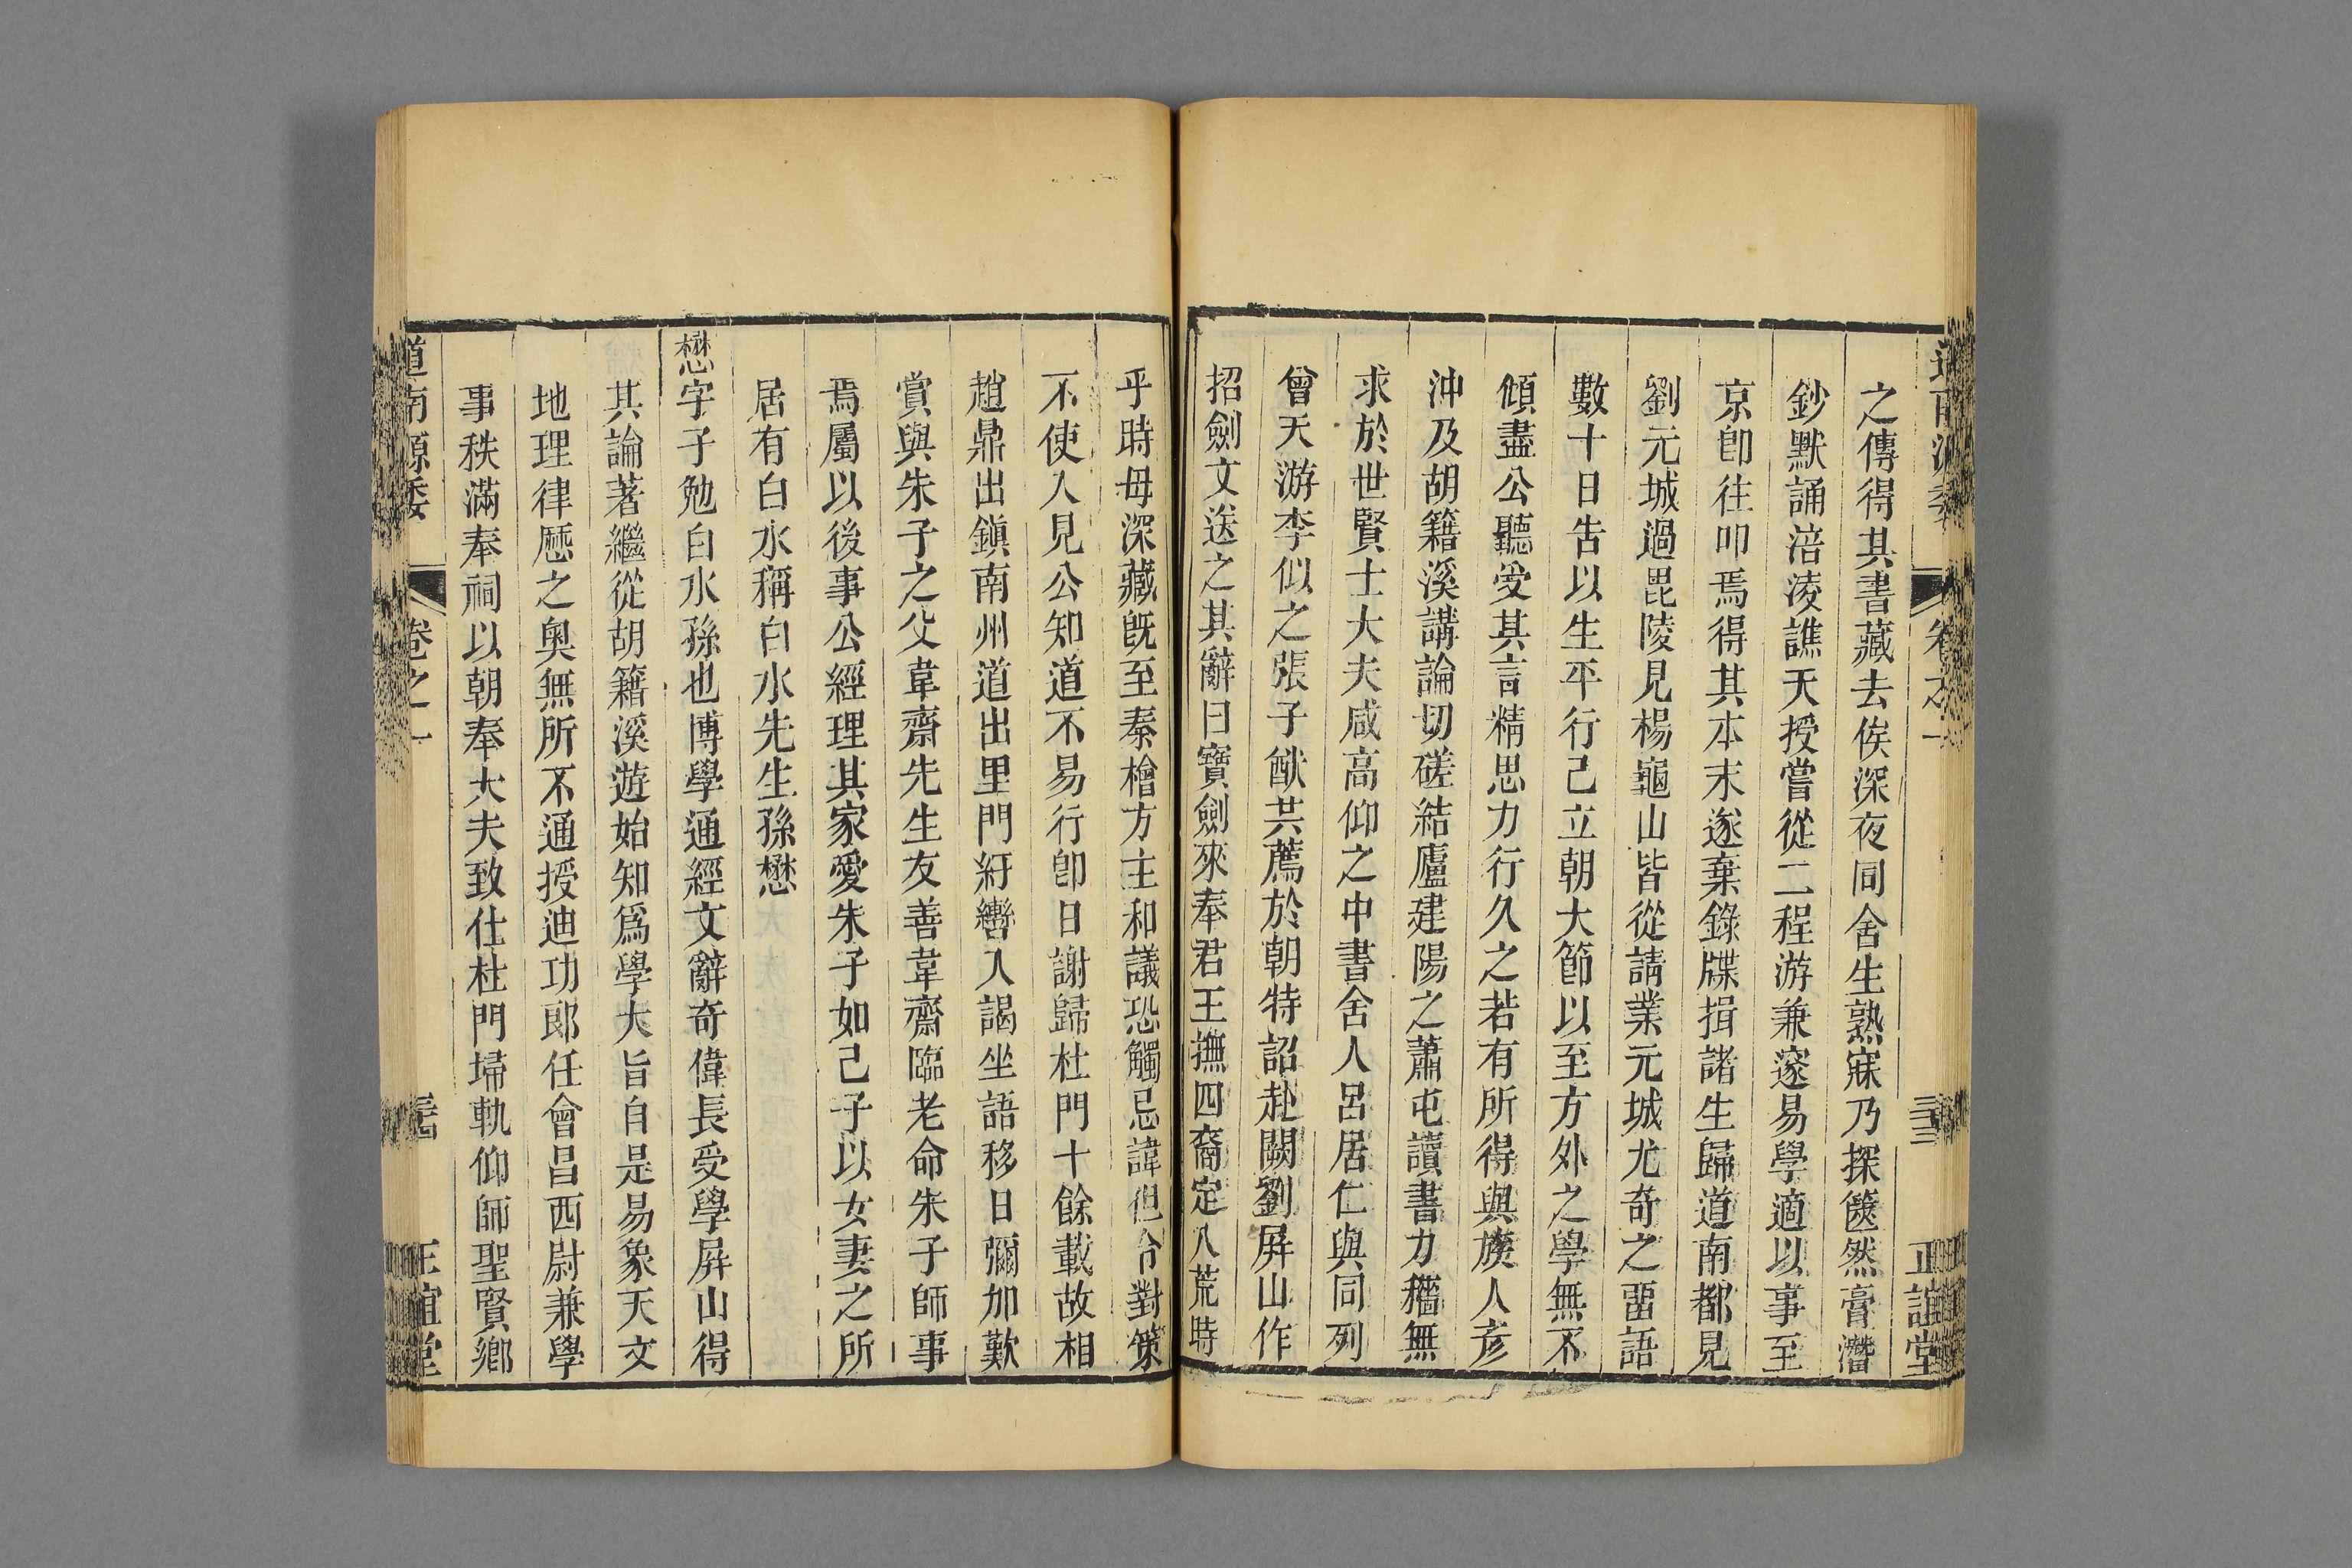 之傳得其書藏去俟深夜同舍生熟寐乃探篋然膏潛
鈔默誦涪淩譙天授嘗從二程游兼邃易學適以事至
京卽往叩焉得其本末遂棄錄牒揖諸生歸道南都見
劉元城過毘陵見楊龜山皆從請業元城尤奇之畱語
數十日告以生平行己立朝大節以至方外之學無不
傾盡公聽受其言精思力行久之若有所得與族人彥
沖及胡籍溪講論切磋結廬建陽之蕭屯讀書力穡無
求於世賢士大夫咸高仰之中書舍人呂居仁與同列
曾天游李似之張子猷共薦於朝特詔赴闕劉屛山作
招劍文送之其辭曰寶劍來奉君王撫四裔定八荒時
乎時毋深藏旣至秦檜方主和議恐觸忌諱但令對策
不使入見公知道不易行卽日謝歸杜門十餘載故相
趙鼎出鎭南州道出里門紆轡入謁坐語移日彌加歎
賞與朱子之父韋齋先生友善韋齋臨老命朱子師事
焉屬以後事公經理其家愛朱子如己子以女妻之所
居有白水稱白水先生孫懋
懋字子勉白水孫也博學通經文辭奇偉長受學屛山得
其論著繼從胡籍溪遊始知爲學大旨自是易象天文
地理律厯之奧無所不通授迪功郎任會昌西尉兼學
事秩滿奉祠以朝奉大夫致仕杜門埽軌仰師聖賢鄉
道南源委 卷之一 正誼堂